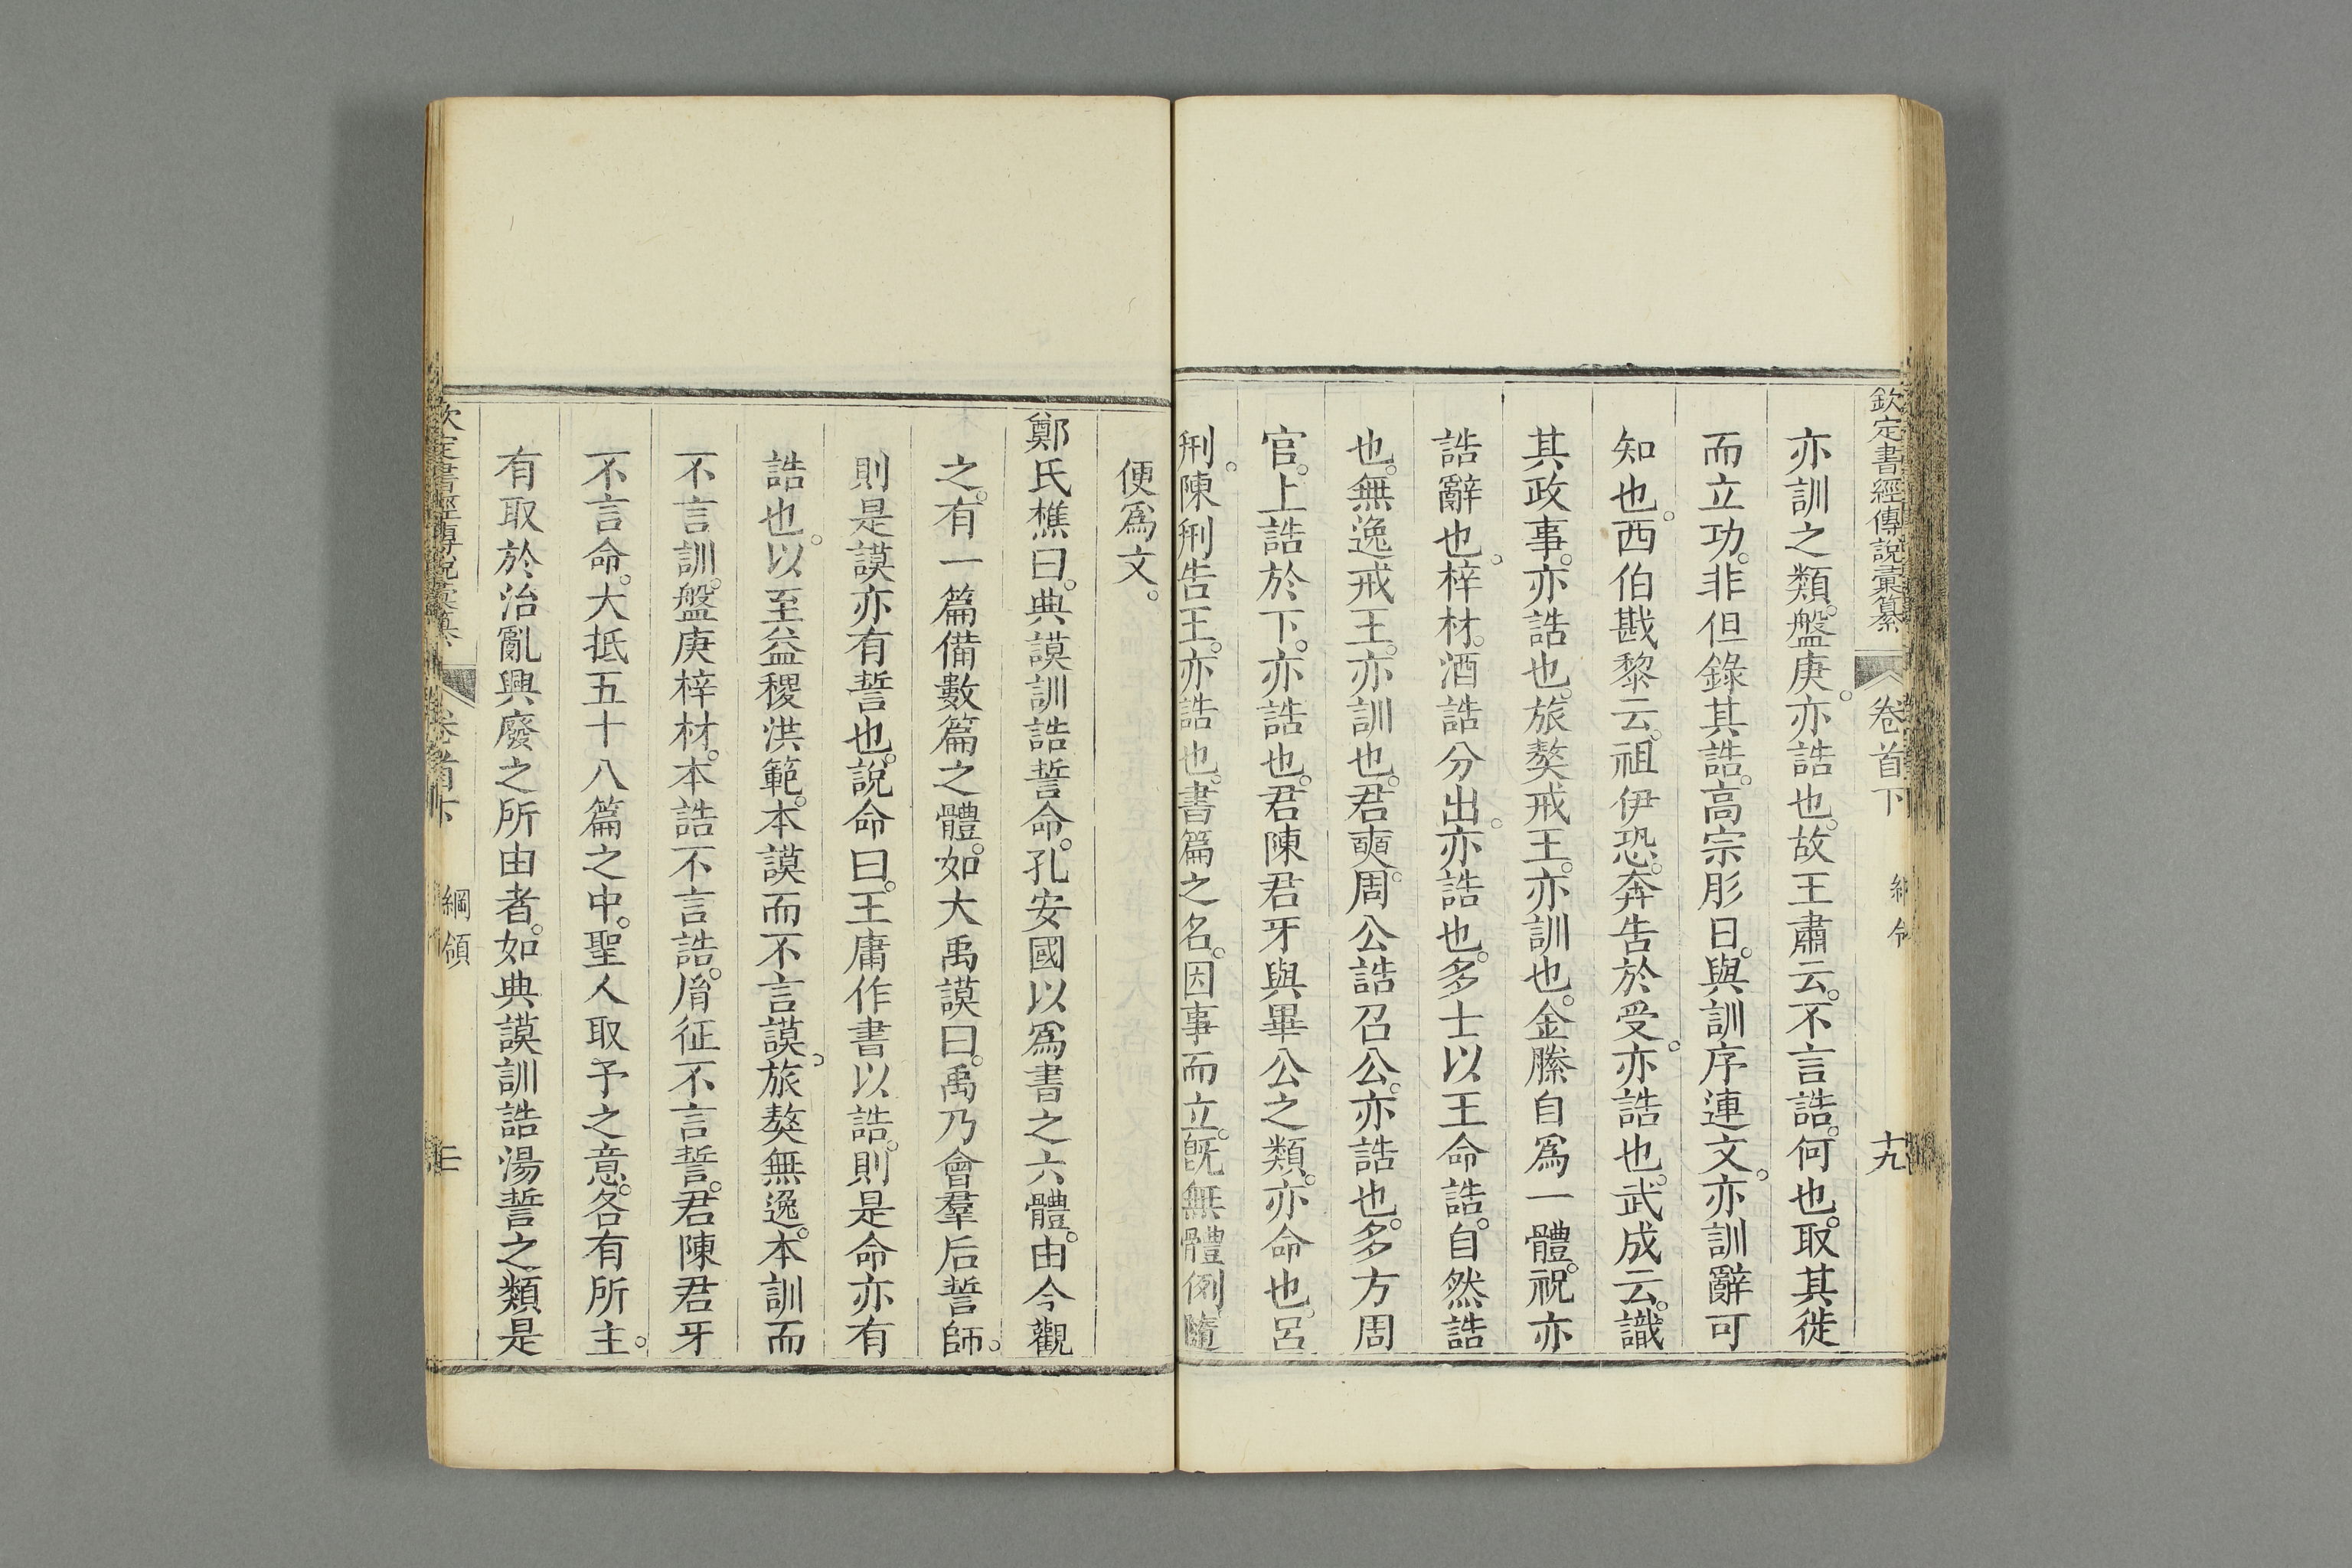 欽定書經傳說彙纂 卷首下 綱領 十九
亦訓之類。盤庚。亦誥也。故王肅云。不言誥。何也。取其徙
而立功。非但錄其誥。高宗肜日。與訓序連文。亦訓辭可
知也。西伯戡黎云。祖伊恐。奔告於受。亦誥也。武成云。識
其政事。亦誥也。旅獒戒王。亦訓也。金縢自爲一體。祝亦
誥辭也。梓材。酒誥分出。亦誥也。多士以王命誥。自然誥
也。無逸戒王。亦訓也。君奭。周公誥召公。亦誥也。多方周
官。上誥於下。亦誥也。君陳君牙與畢公之類。亦命也。呂
刑。陳刑告王。亦誥也。書篇之名。因事而立。旣無體例。隨
便爲文。
鄭氏樵曰。典謨訓誥誓命。孔安國以爲書之六體。由今觀
之。有一篇備數篇之體。如大禹謨曰。禹乃會羣后誓師。
則是謨亦有誓也。說命曰。王庸作書以誥。則是命亦有
誥也。以至益稷洪範。本謨而不言謨。旅獒無逸。本訓而
不言訓。盤庚梓材。本誥不言誥。胤征不言誓。君陳君牙
不言命。大抵五十八篇之中。聖人取予之意。各有所主。
有取於治亂興廢之所由者。如典謨訓誥湯誓之類是
欽定書經傳說彙纂 卷首下 綱領 二十